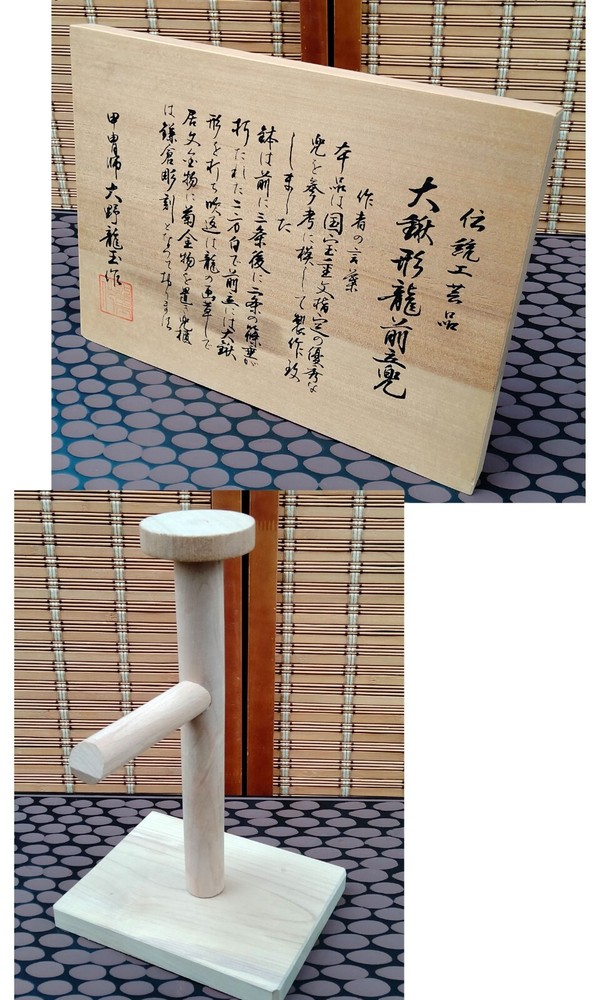 伝統工芸品
大鍬形龍前立兜
作者の言葉
本品は国宝重文指定の優秀な
兜を参考に模して製作致
しました
鉢は前に三条後に二条の篠垂が
打たれた二方白で前立には大鍬
形を打ち吹返は龍の画革して
居文金物に菊金物を置き兜櫃
は鎌倉彫刻となって居ります
甲冑師 大野龍玉作